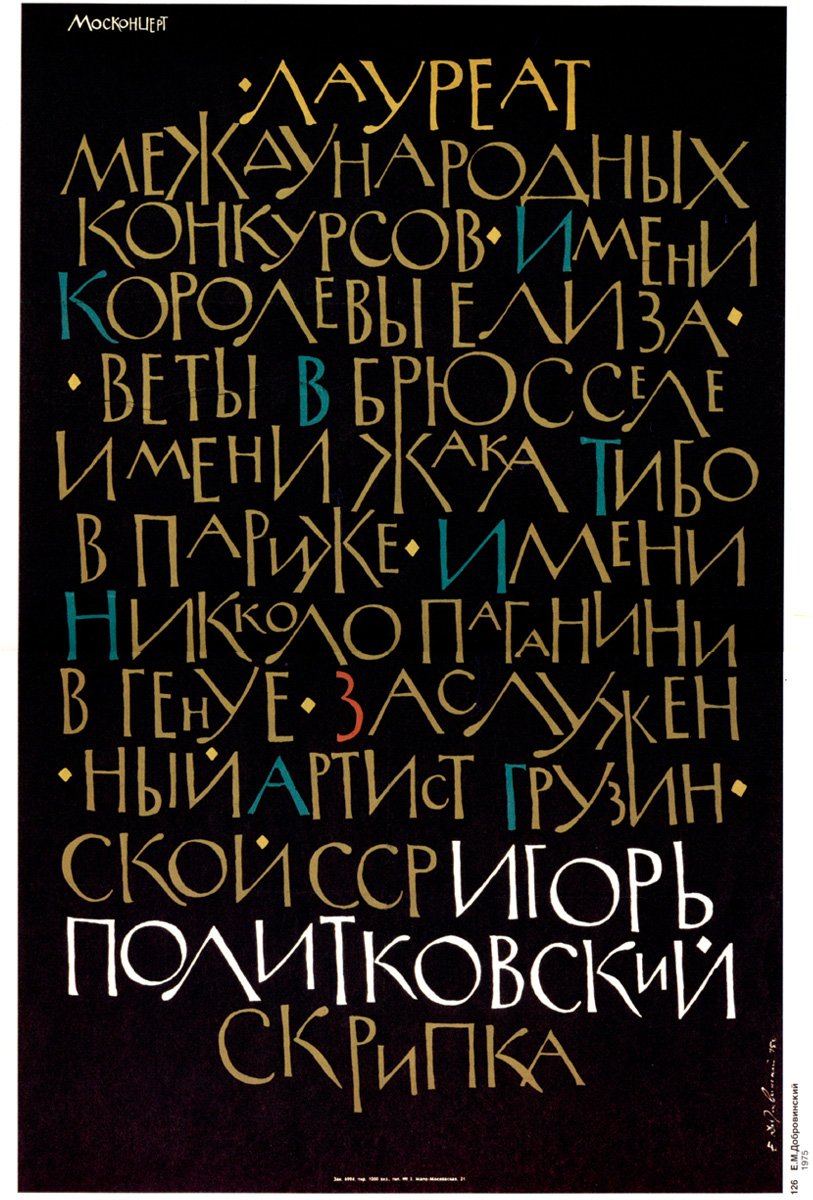 Москонцерт
·ЛАУРЕАТ
МЕЖДУНАРОДНЫХ
КОНКУРСОВ·ИМЕНИ
КОРОЛЕВЫ ЕЛИЗА·
·ВЕТЫ В БРЮССЕЛЕ
ИМЕНИ ЖАКА ТИБО
В ПАРИЖЕ·ИМЕНИ
НИККОЛО ПАГАНИНИ
В ГЕНУЕ·ЗАСЛУЖЕН
·НЫЙ АРТИСТ ГРУЗИН·
СКОЙ ССР ИГОРЬ
ПОЛИТКОВСКИЙ
СКРИПКА
126 Е.М.Добровинский
1975